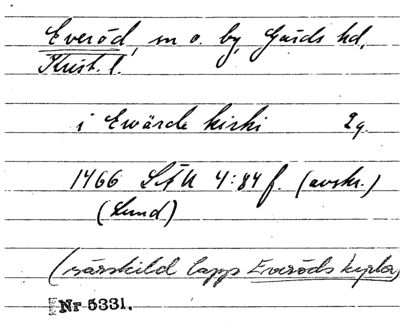 Everöd, sn o. by, Gärds hd,
Krist. l.
i Ewärde kirki 2g.
1466 STU 4:84 f. (avskr.)
(Lund)
(särskild lapp Everöds kyrka)
Nr 5331.